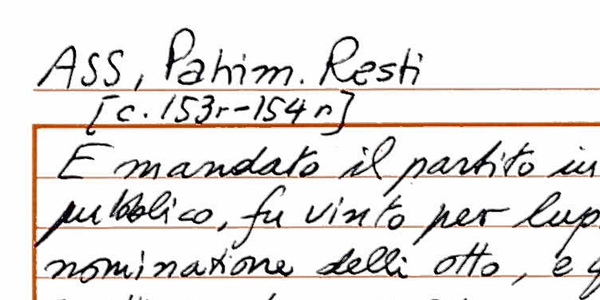 ASS, Patrim. Resti
[c. 153r-154r]
E mandato il partito in
pubblico, fu vinto per lup
nominatione delli otto, e